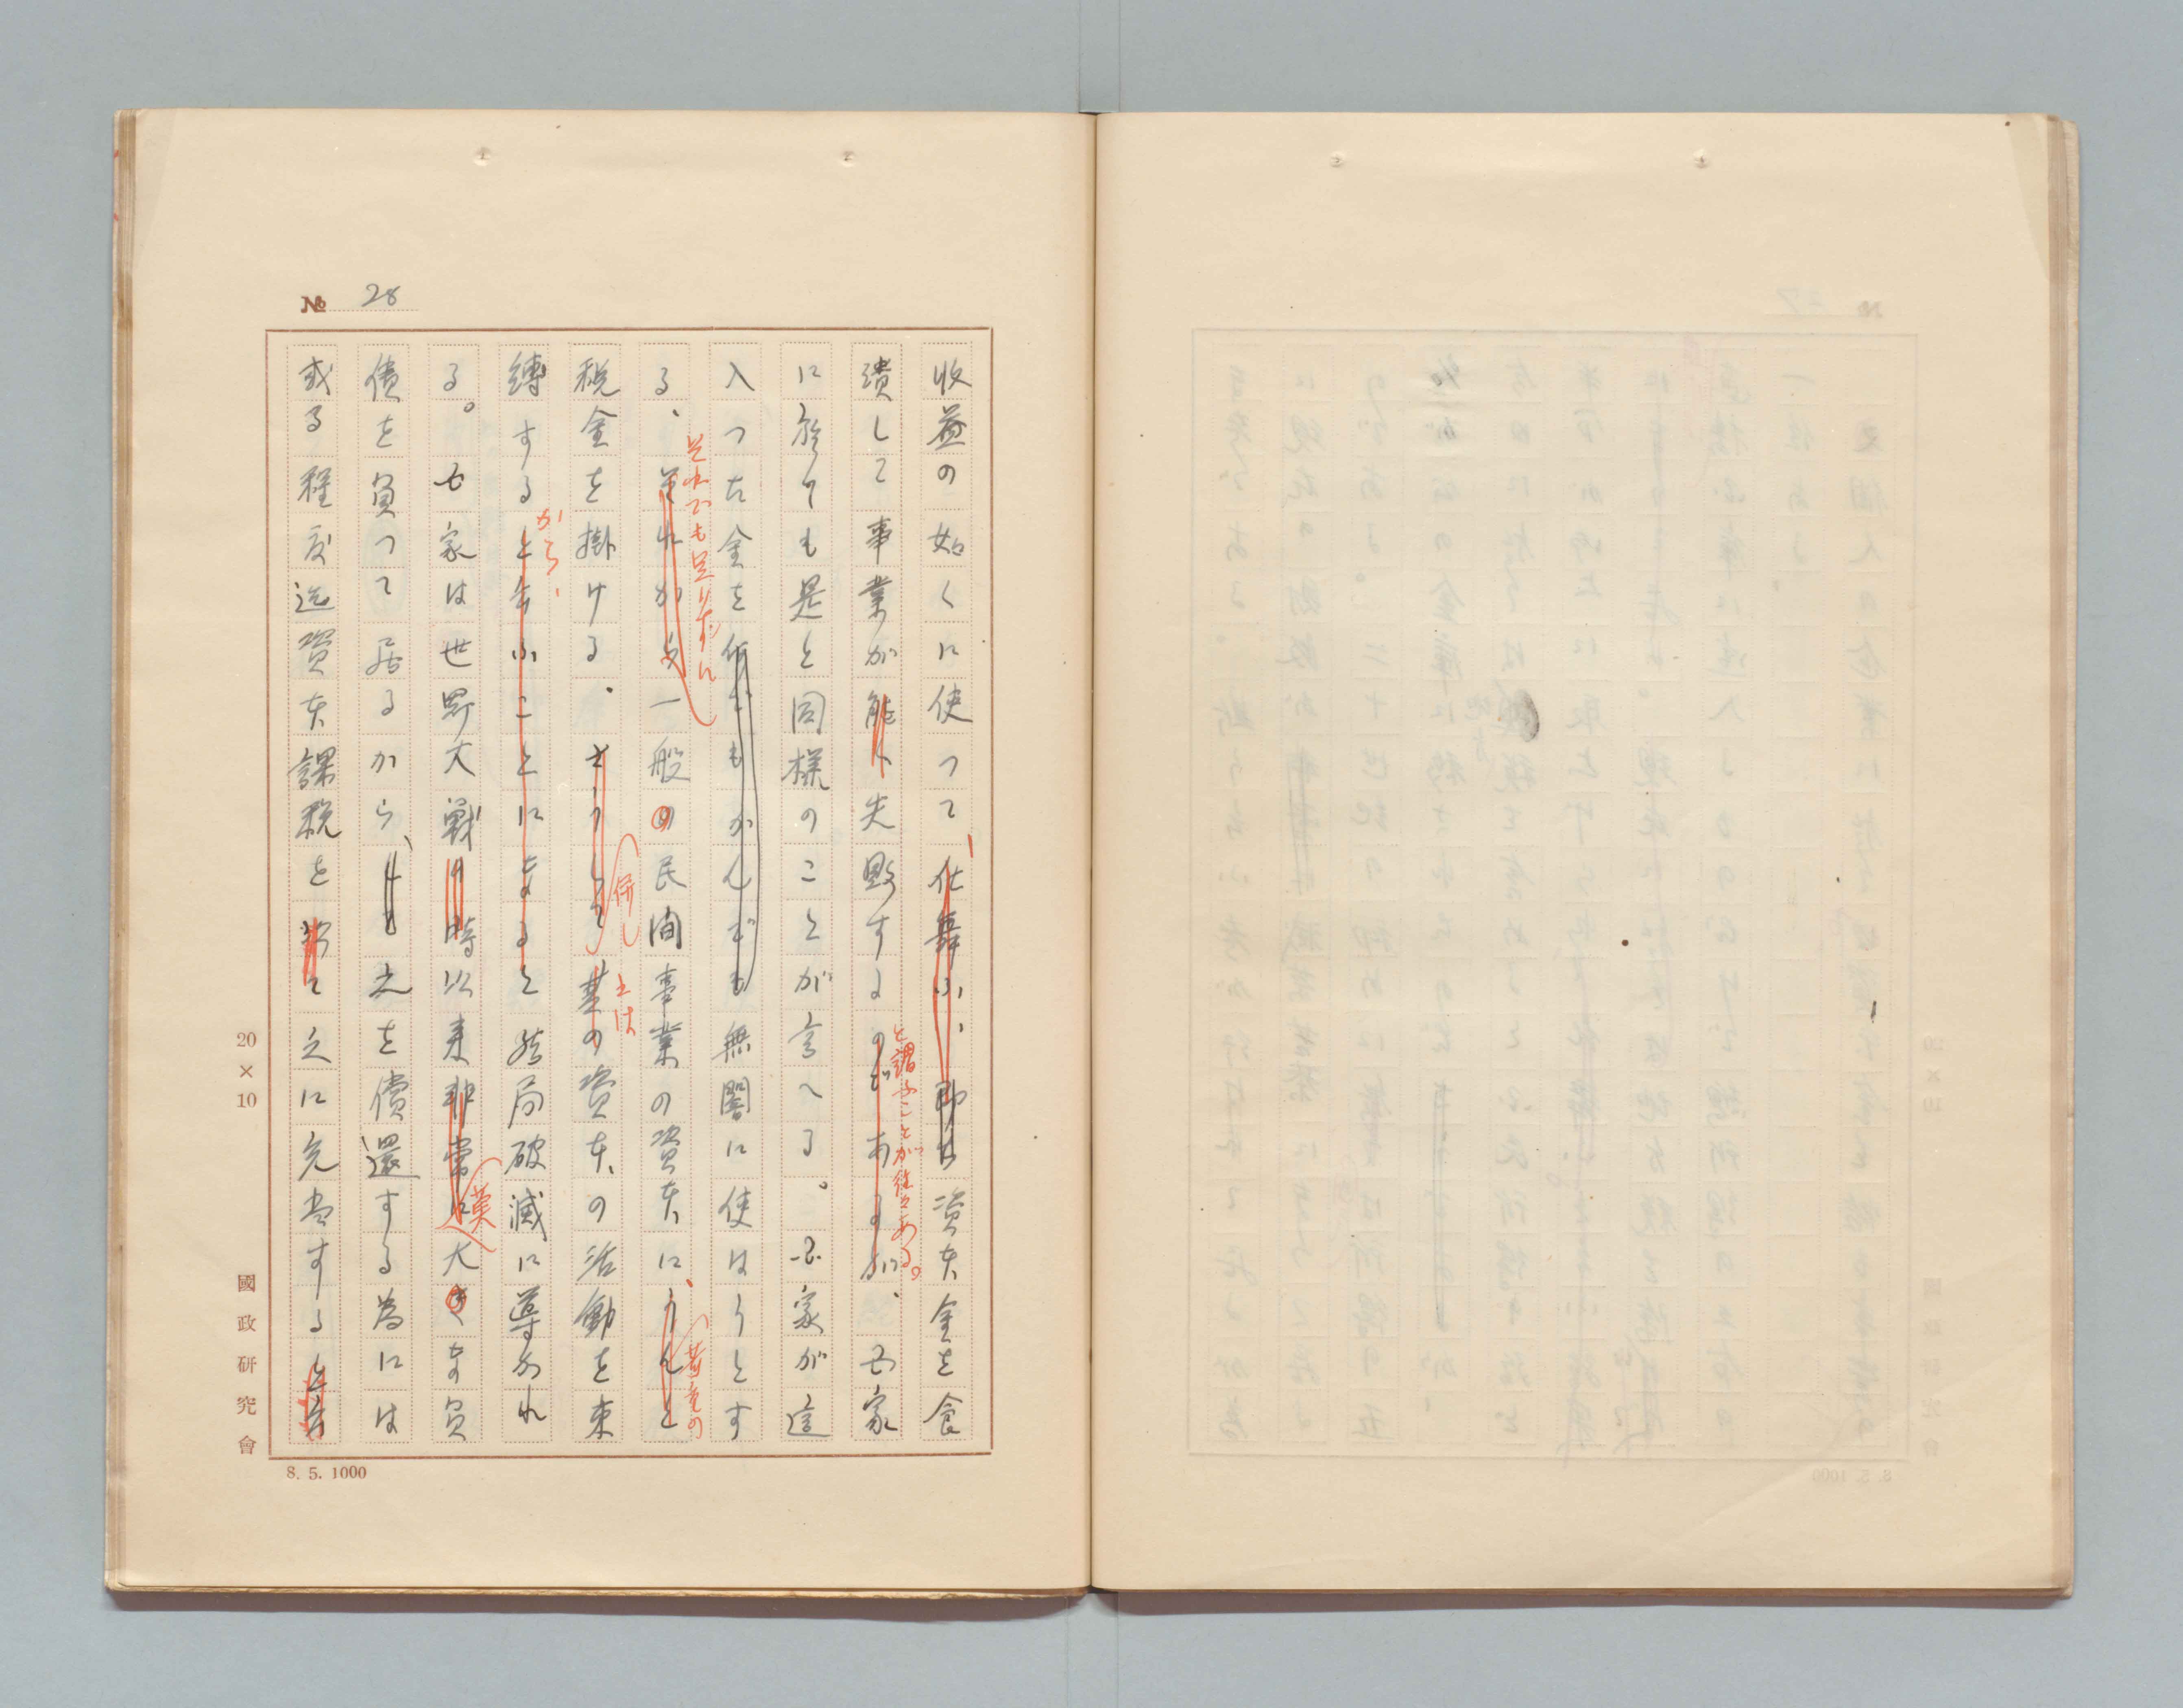 № 28
收益の如くに使つて、仕舞ふ、即ち資本金を食
潰して事業が能く失敗するのであるが、国家
と謂ふことが往々ある。
に於ても是と同様のことが言へる。国家が這
入つた金を何でもかんでも無闇に使はうとす
それでも足りずに
る、それから一般の民間事業の資本に、うんと
苛竟の
税金を掛ける。さうして其の資本の活動を束
併し
とは
縛すると云ふことになると結局破滅に導かれ
から、
る。国家は世界大戦の時以来非常に大きな負
莫
債を負つて居るから、之を償還する為には
或る程度迄資本課税を以て之に充当すると云
20×10
國政研究會
8. 5. 1000